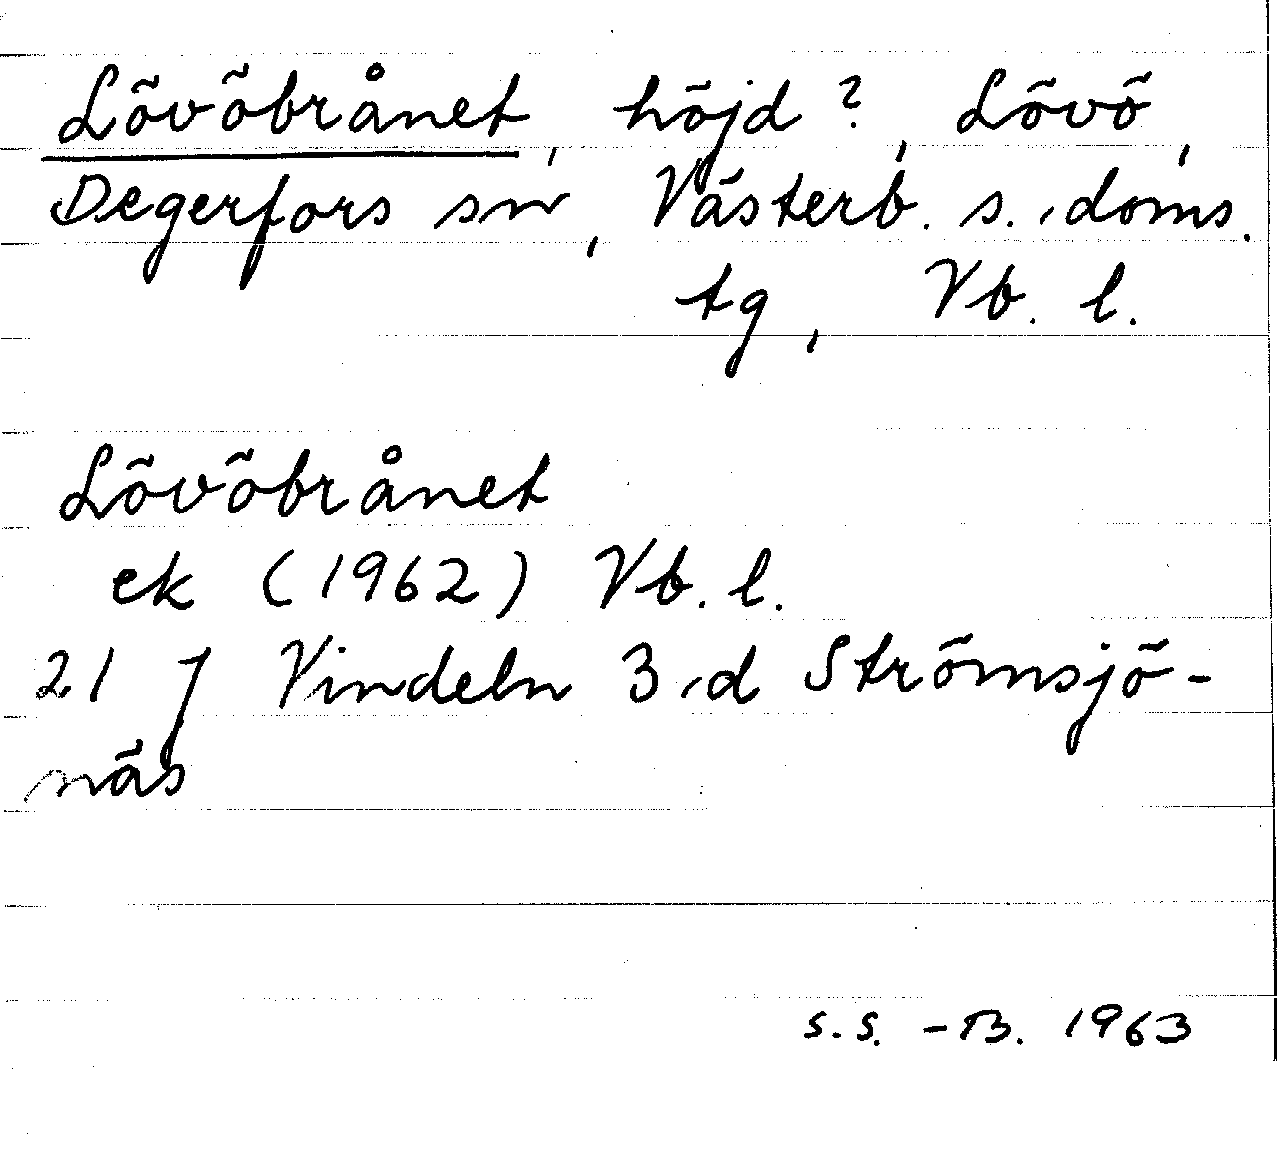 Lövöbrånet, höjd?, Lövö,
Degerfors sn, Västerb. s. doms.
tg, Vb. l.
Lövöbrånet
ek (1962) Vb. l.
21 J Vindeln 3 d Strömsjö-
näs
S.S. -B. 1963